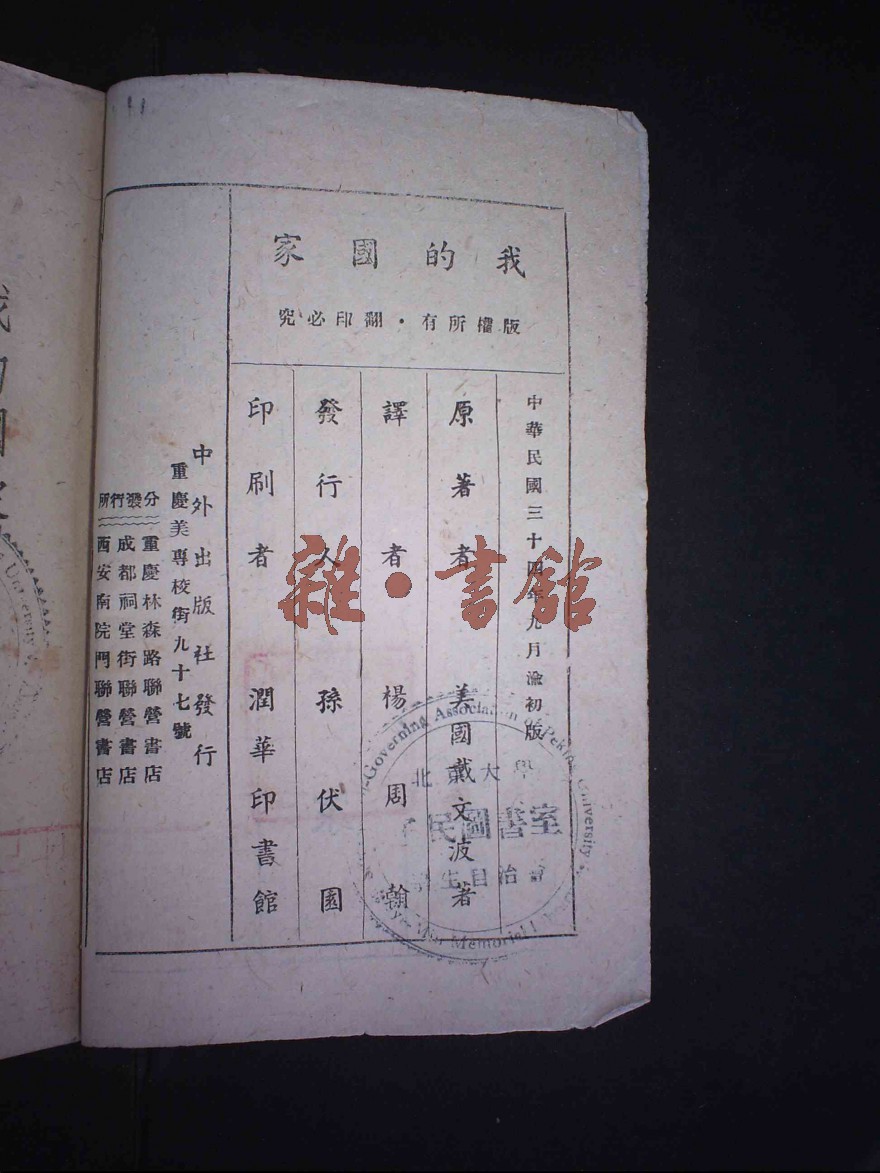 我的國家
版權所有・翻印必究
中華民國三十四年九月渝初版
原著者 美國戴文波著
譯者 楊周翰
發行人 孫伏園
印刷者 潤華印書館
中外出版社發行
重慶美專校街九十七號
分發行所
重慶林森路聯營書店
成都祠堂街聯營書店
西安南院門聯營書店
雜・書館
Governing Association of Peking University
北大學
民圖書室
學生自治會
Memorial
University
我的國家